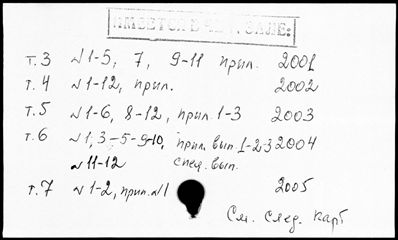 ИМЕЕТСЯ В ЧИТ. ЗАЛЕ:
т.3 N 1-5, 7, 9-11 прил. 2001
т.4 N 1-12, прил. 2002
т.5 N 1-6, 8-12, прил. 1-3 2003
т.6 N 1, 3-5-9-10, прил. вып. 1-2-3 2004
N 11-12 спец. вып.
т.7 N 1-2, прил. N1 2005
См. след. карт